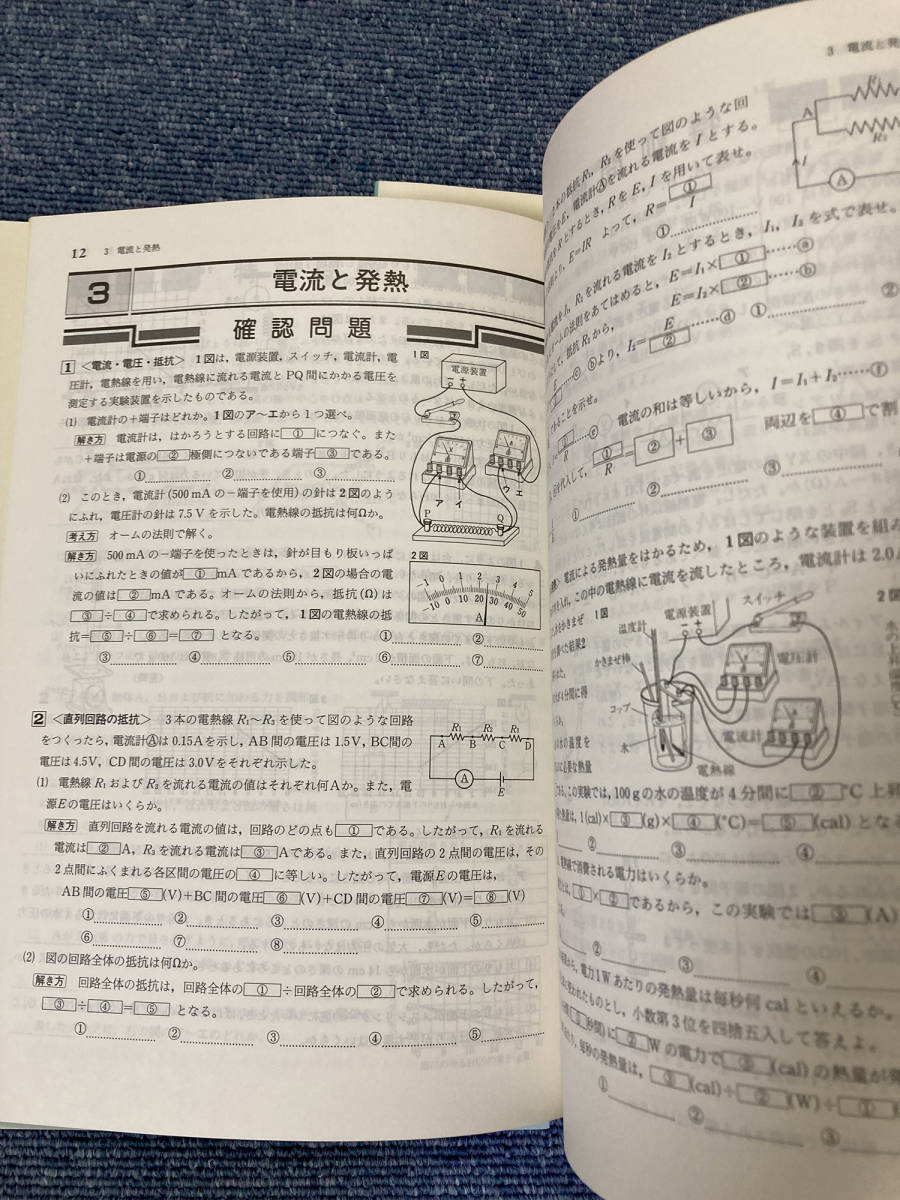 12 3 電流と発熱
3 電流と発熱
確認問題
1 〈電流・電圧・抵抗〉 1図は，電源装置，スイッチ，電流計，電
圧計，電熱線を用い，電熱線に流れる電流とPQ間にかかる電圧を
測定する実験装置を示したものである。
(1) 電流計の＋端子はどれか。1図のア〜エから1つ選べ。
解き方 電流計は，はかろうとする回路に①につなぐ。また
＋端子は電源の②極側につないである端子③である。
① ② ③
(2) このとき，電流計(500 mAの−端子を使用)の針は2図のよう
にふれ，電圧計の針は7.5 Vを示した。電熱線の抵抗は何Ωか。
考え方 オームの法則で解く。
解き方 500 mAの−端子を使ったときは，針が目もり板いっぱ
いにふれたときの値が①mAであるから，2図の場合の電
流の値は②mAである。オームの法則から，抵抗(Ω)は
③÷④で求められる。したがって，1図の電熱線の抵
抗=⑤÷⑥=⑦となる。 ① ②
③ ④ ⑤ ⑥ ⑦
1図
電源装置
− +
ア イ
ウ エ
P Q
2図
−1 0 1 2 3 4 5
−10 0 10 20 30 40 50
A
2 〈直列回路の抵抗〉 3本の電熱線R₁〜R₃を使って図のような回路
をつくったら，電流計Ⓐは0.15Aを示し，AB間の電圧は1.5V，BC間の
電圧は4.5V，CD間の電圧は3.0Vをそれぞれ示した。
(1) 電熱線R₁およびR₃を流れる電流の値はそれぞれ何Aか。また，電
源Eの電圧はいくらか。
解き方 直列回路を流れる電流の値は，回路のどの点も①である。したがって，R₁を流れる
電流は②A，R₃を流れる電流は③Aである。また，直列回路の2点間の電圧は，その
2点間にふくまれる各区間の電圧の④に等しい。したがって，電源Eの電圧は，
AB間の電圧⑤(V)+BC間の電圧⑥(V)+CD間の電圧⑦(V)=⑧(V)
① ② ③ ④ ⑤
⑥ ⑦ ⑧
(2) 図の回路全体の抵抗は何Ωか。
解き方 回路全体の抵抗は，回路全体の①÷回路全体の②で求められる。したがって，
③÷④=⑤となる。
① ② ③ ④ ⑤
R₁ R₂ R₃
A B C D
A
E
3 電流と発
抵抗R₁，R₂を使って図のような回
電流計Ⓐを流れる電流をIとする。
とするとき，RをE，Iを用いて表せ。
より，E=IR よって，R=①/I
①
R₂を流れる電流をI₂とするとき，I₁，I₂を式で表せ。
オームの法則をあてはめると，E=I₁×①……ⓐ
E=I₂×②……ⓑ
ⓑより，I₂=E/②……ⓓ ① ②
ことを示せ。
電流の和は等しいから，I=I₁+I₂……ⓕ
を代入して，①/R=②+③ 両辺を④で割
① ② ③
電流による発熱量をはかるため，1図のような装置を組み
を入れ，この中の電熱線に電流を流したところ，電流計は2.0
1図
温度計
かきまぜ棒
コップ
水
電源装置
スイッチ
− +
電圧計
電流計
電熱線
2図
この実験では，100gの水の温度が4分間に②℃上昇
1(cal)×③(g)×④(℃)=⑤(cal)となる
② ③ ④
電熱線で消費される電力はいくらか。
①×②であるから，この実験では③(A)
② ③ ④
電力1Wあたりの発熱量は毎秒何calといえるか。
われたものとし，小数第3位を四捨五入して答えよ。
秒間)に②Wの電力で③(cal)の熱量が発
毎秒の発熱量は，③(cal)÷②(W)÷①
① ② ③